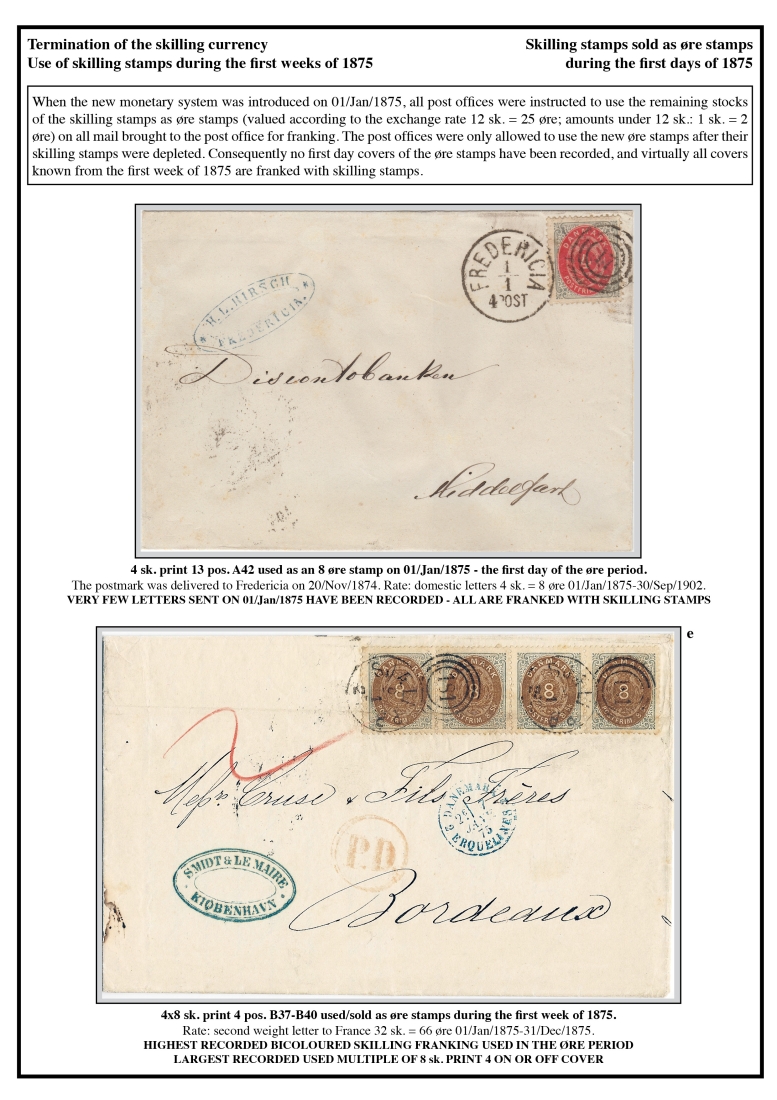 Termination of the skilling currency
Skilling stamps sold as øre stamps
Use of skilling stamps during the first weeks of 1875
during the first days of 1875
When the new monetary system was introduced on 01/Jan/1875, all post offices were instructed to use the remaining stocks
of the skilling stamps as øre stamps (valued according to the exchange rate 12 sk. = 25 øre; amounts under 12 sk.: 1 sk. = 2
øre) on all mail brought to the post office for franking. The post offices were only allowed to use the new øre stamps after their
skilling stamps were depleted. Consequently no first day covers of the øre stamps have been recorded, and virtually all covers
known from the first week of 1875 are franked with skilling stamps.
FREDERICIA
1
1
4 POST
H. L. HIRSCH
FREDERICIA.
Discontobanken
Middelfart
4 sk. print 13 pos. A42 used as an 8 øre stamp on 01/Jan/1875 - the first day of the øre period.
The postmark was delivered to Fredericia on 20/Nov/1874. Rate: domestic letters 4 sk. = 8 øre 01/Jan/1875-30/Sep/1902.
VERY FEW LETTERS SENT ON 01/Jan/1875 HAVE BEEN RECORDED - ALL ARE FRANKED WITH SKILLING STAMPS
e
DANMARK
8
POSTFRIM
DANMARK
8
POSTFRIM
DANMARK
8
POSTFRIM
DANMARK
8
POSTFRIM
2
Messrs Cruse & Fils Frères
DANEMARK
JANV
75
ERQUELINES
P.D
SMIDT & LE MAIRE
KIÖBENHAVN
Bordeaux
4x8 sk. print 4 pos. B37-B40 used/sold as øre stamps during the first week of 1875.
Rate: second weight letter to France 32 sk. = 66 øre 01/Jan/1875-31/Dec/1875.
HIGHEST RECORDED BICOLOURED SKILLING FRANKING USED IN THE ØRE PERIOD
LARGEST RECORDED USED MULTIPLE OF 8 sk. PRINT 4 ON OR OFF COVER